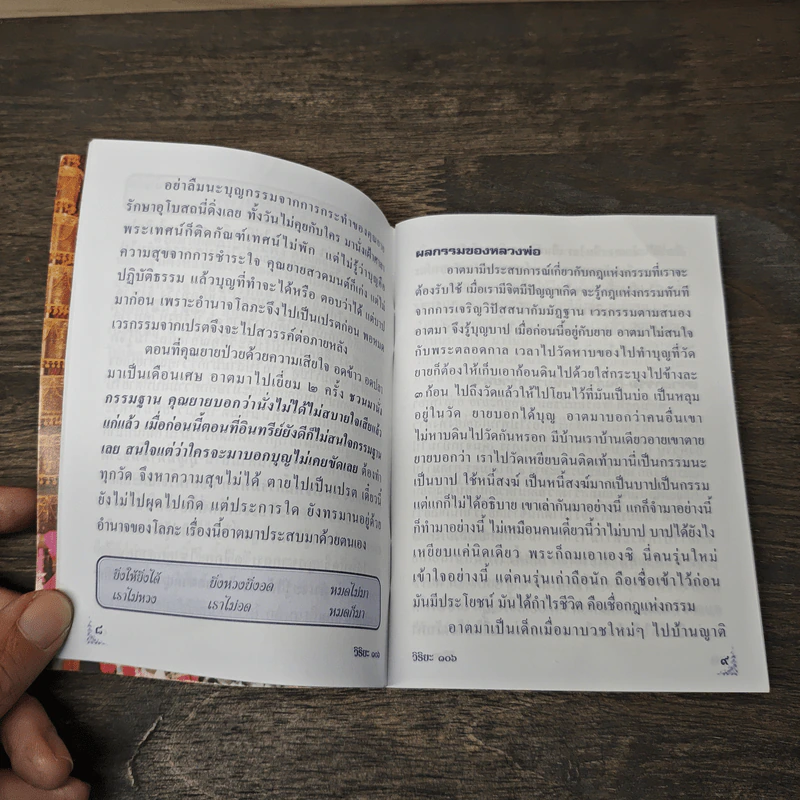 อย่าลืมนะบุญกรรมจากการกระทำของคุณยาย
รักษาอุโบสถนี่ดิ่งเลย ทั้งวันไม่คุยกับใคร มานั่งเฝ้าศาลา
พระเทศน์ก็ติดกัณฑ์เทศน์ไม่พัก แต่ไม่รู้ว่าบุญคือ
ความสุขจากการชำระใจ คุณยายสวดมนต์ก็เก่ง แต่ไม่
ปฏิบัติธรรม แล้วบุญที่ทำจะได้หรือ ตอบว่าได้ แต่บาป
มาก่อน เพราะอำนาจโลภะจึงไปเป็นเปรตก่อน พอหมด
เวรกรรมจากเปรตจึงจะไปสวรรค์ต่อภายหลัง
ตอนที่คุณยายป่วยด้วยความเสียใจ อดข้าว อดปลา
มาเป็นเดือนเศษ อาตมาไปเยี่ยม ๒ ครั้ง ชวนมานั่ง
กรรมฐาน คุณยายบอกว่านั่งไม่ได้ไม่สบายใจเสียแล้ว
แก่แล้ว เมื่อก่อนนี้ตอนที่อินทรีย์ยังดีก็ไม่สนใจกรรมฐาน
เลย สนใจแต่ว่าใครจะมาบอกบุญไม่เคยขัดเลย ต้องทำ
ทุกวัด จึงหาความสุขไม่ได้ ตายไปเป็นเปรต เดี๋ยวนี้
ยังไม่ไปผุดไปเกิด แต่ประการใด ยังทรมานอยู่ด้วย
อำนาจของโลภะ เรื่องนี้อาตมาประสบมาด้วยตนเอง
ยิ่งให้ยิ่งได้ ยิ่งหวงยิ่งอด หมดไม่มา
เราไม่หวง เราไม่อด หมดก็มา
๘
วิริยะ ๑๐๖
ผลกรรมของหลวงพ่อ
อาตมามีประสบการณ์เกี่ยวกับกฎแห่งกรรมที่เราจะ
ต้องรับใช้ เมื่อเรามีจิตมีปัญญาเกิด จะรู้กฎแห่งกรรมทันที
จากการเจริญวิปัสสนากัมมัฏฐาน เวรกรรมตามสนอง
อาตมา จึงรู้บุญบาป เมื่อก่อนนี้อยู่กับยาย อาตมาไม่สนใจ
กับพระตลอดกาล เวลาไปวัดหาบของไปทำบุญที่วัด
ยายก็ต้องให้เก็บเอาก้อนดินไปด้วยใส่กระบุงไปข้างละ
๓ ก้อน ไปถึงวัดแล้วให้ไปโยนไว้ที่มันเป็นบ่อ เป็นหลุม
อยู่ในวัด ยายบอกได้บุญ อาตมาบอกว่าคนอื่นเขา
ไม่หาบดินไปวัดกันหรอก มีบ้านเราบ้านเดียวอายเขาตาย
ยายบอกว่า เราไปวัดเหยียบดินติดเท้ามานี่เป็นกรรมนะ
เป็นบาป ใช้หนี้สงฆ์ เป็นหนี้สงฆ์มากเป็นบาปเป็นกรรม
แต่แกก็ไม่ได้อธิบาย เขาเล่ากันมาอย่างนี้ แกก็จำมาอย่างนี้
ก็ทำมาอย่างนี้ ไม่เหมือนคนเดี๋ยวนี้ว่าไม่บาป บาปได้ยังไง
เหยียบแค่นิดเดียว พระก็ถมเอาเองซิ นี่คนรุ่นใหม่
เข้าใจอย่างนี้ แต่คนรุ่นเก่าถือนัก ถือเชื่อเข้าไว้ก่อน
มันมีประโยชน์ มันได้กำไรชีวิต คือเชื่อกฎแห่งกรรม
อาตมาเป็นเด็กเมื่อมาบวชใหม่ๆ ไปบ้านญาติ
วิริยะ ๑๐๖
๙